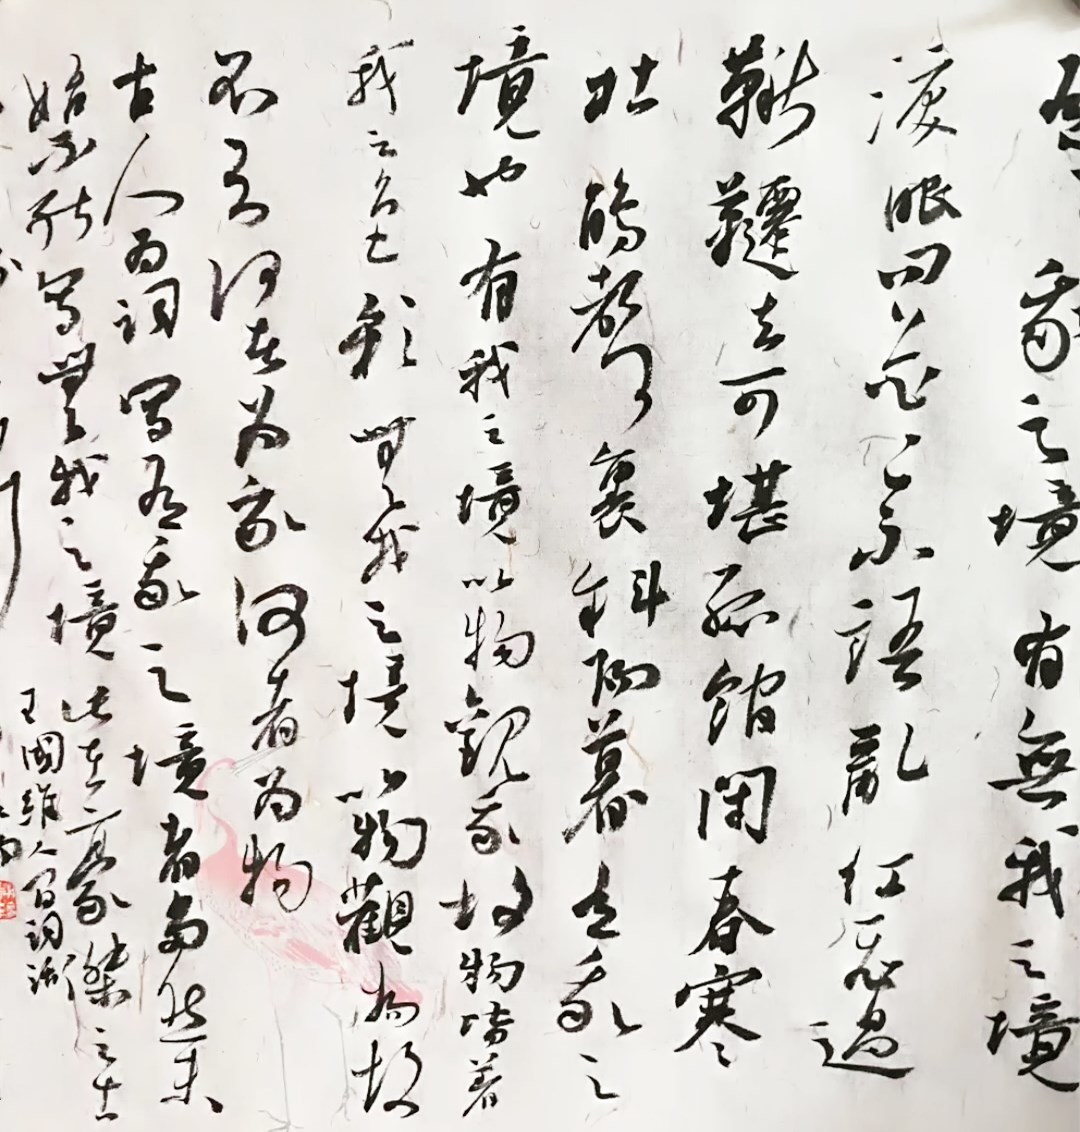 我之境有無我之境
淚眼问花花不语亂红飛過
鞦韆去可堪孤館閉春寒
杜鹃声裏斜陽暮有我之
境也有我之境以物觀我故物皆著
我之色彩無我之境以物觀物故
不知何者为我何者为物
古人为词写有我之境者为然未
始不能写無我之境此在豪傑之士
王國維人间词话